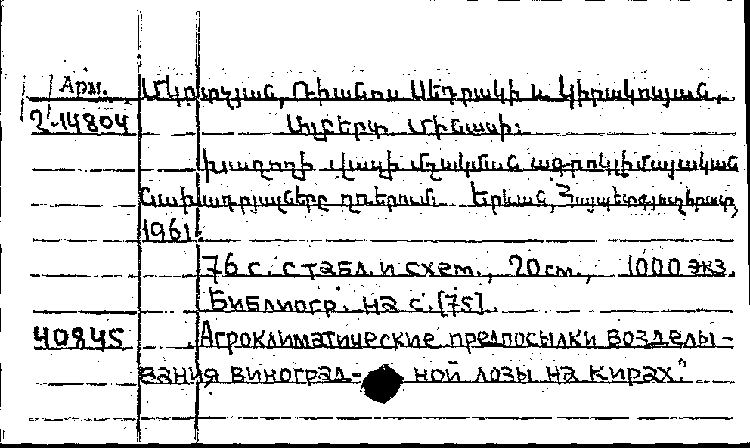 Арм. Մկրտչյան, Ռիանոս Սեդրակի և Կիրակոսյան,
2-14804 Ալբերտ Մինասի:
Խաղողի վազի մշակման ագրոկլիմայական
նախադրյալները ղռերում. Երևան, Հայպետգյուղհրատ,
1961.
76 с. с табл. и схем., 20 см., 1000 экз.
Библиогр. на с. [75].
40845 Агроклиматические предпосылки возделы-
вания виноград- ной лозы на кирах."